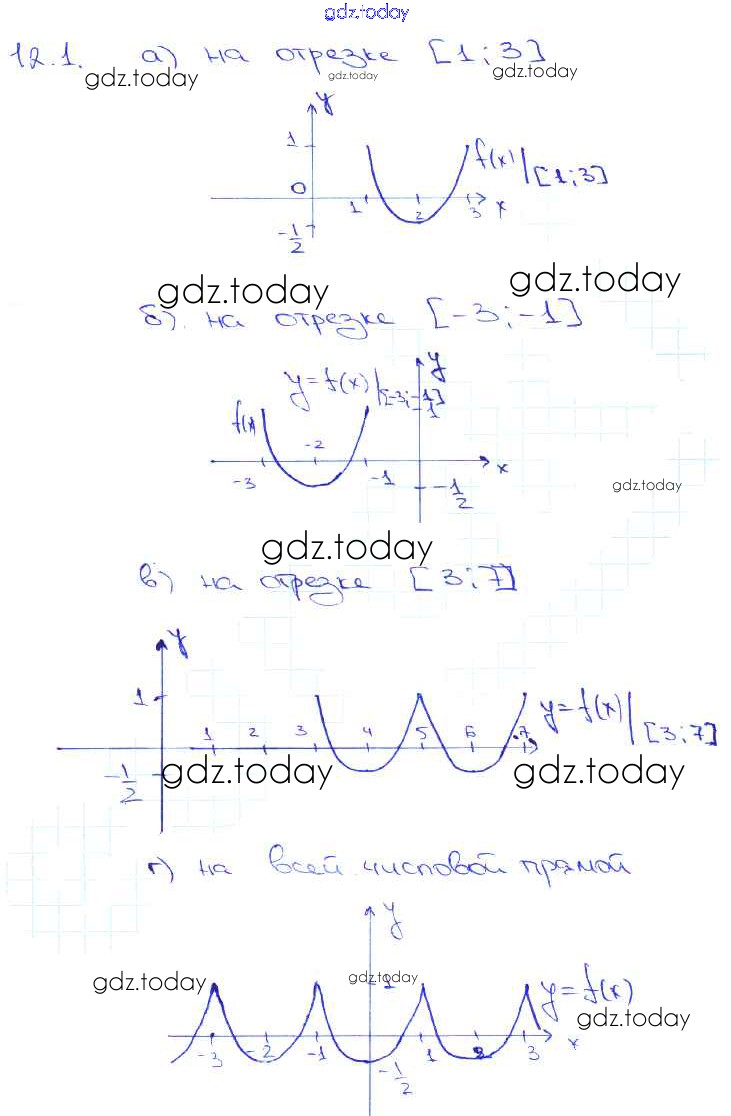 gdz.today
12.1. а) на отрезке [1; 3]
gdz.today gdz.today gdz.today
y
1
f(x)|[1;3]
0
1 2 3 x
-1/2
gdz.today gdz.today
б) на отрезке [-3; -1]
y
y=f(x)|[-3;-1]
1
f(x)
-2
x
-3 -1
-1/2
gdz.today
gdz.today
в) на отрезке [3; 7]
y
1
y=f(x)|[3;7]
1 2 3 4 5 6 7
-1/2
gdz.today gdz.today
г) на всей числовой прямой
y
gdz.today gdz.today
1
y=f(x)
gdz.today
-3 -2 -1 1 2 3 x
-1/2